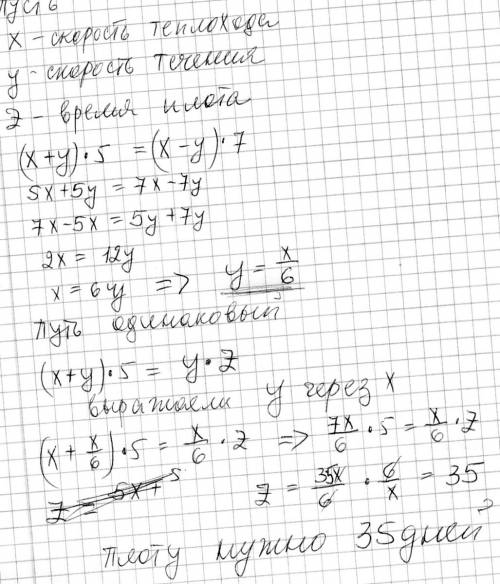 Пусть
x - скорость теплохода
y - скорость течения
z - время плота
(x+y)·5 = (x-y)·7
5x+5y = 7x-7y
7x-5x = 5y+7y
2x = 12y
x = 6y => y = x/6
путь одинаковый
(x+y)·5 = y·z
выражаем y через x
(x + x/6)·5 = x/6 · z => 7x/6 · 5 = x/6 · z
z = 5x+5 z = 35x/6 · 6/x = 35
плоту нужно 35 дней